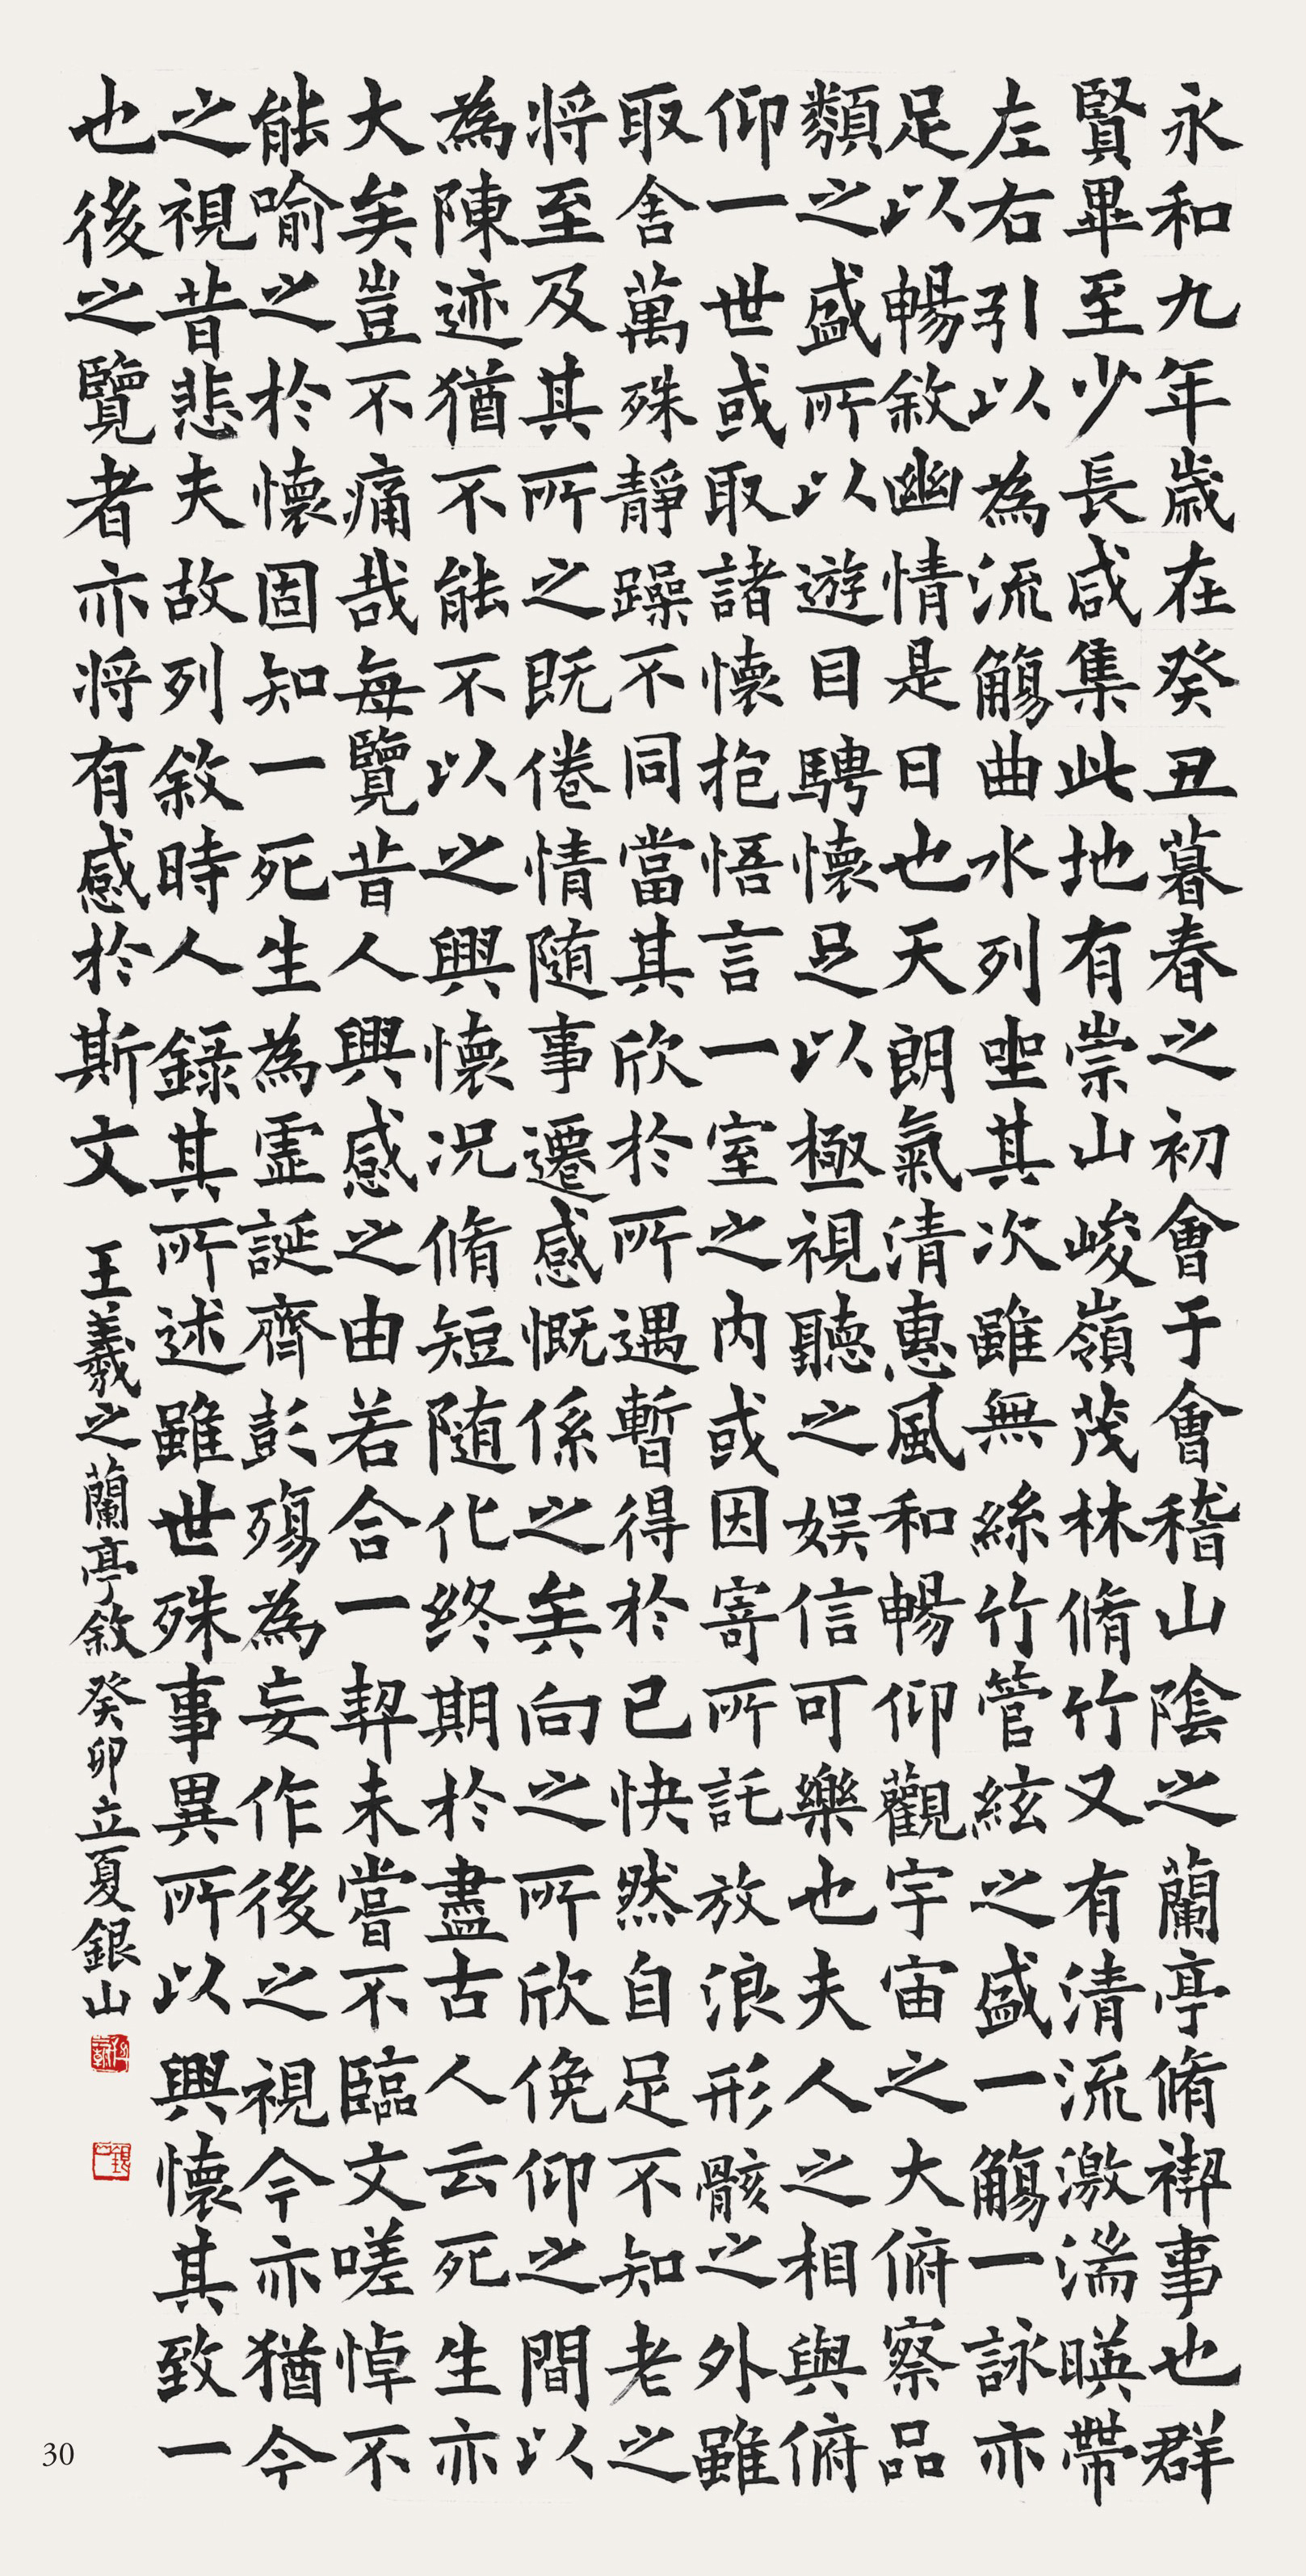 永和九年歲在癸丑暮春之初會于會稽山陰之蘭亭脩禊事也群
賢畢至少長咸集此地有崇山峻嶺茂林脩竹又有清流激湍暎帶
左右引以為流觴曲水列坐其次雖無絲竹管絃之盛一觴一詠亦
足以暢敘幽情是日也天朗氣清惠風和暢仰觀宇宙之大俯察品
類之盛所以遊目騁懷足以極視聽之娛信可樂也夫人之相與俯
仰一世或取諸懷抱悟言一室之內或因寄所託放浪形骸之外雖
取舍萬殊靜躁不同當其欣於所遇暫得於己快然自足不知老之
将至及其所之既倦情随事遷感慨係之矣向之所欣俛仰之間以
為陳迹猶不能不以之興懷况脩短随化终期於盡古人云死生亦
大矣豈不痛哉每覽昔人興感之由若合一契未嘗不臨文嗟悼不
能喻之於懷固知一死生為虛誕齊彭殤為妄作後之視今亦猶今
之視昔悲夫故列敘時人錄其所述雖世殊事異所以興懷其致一
也後之覽者亦将有感於斯文 王羲之蘭亭敘癸卯立夏銀山
30